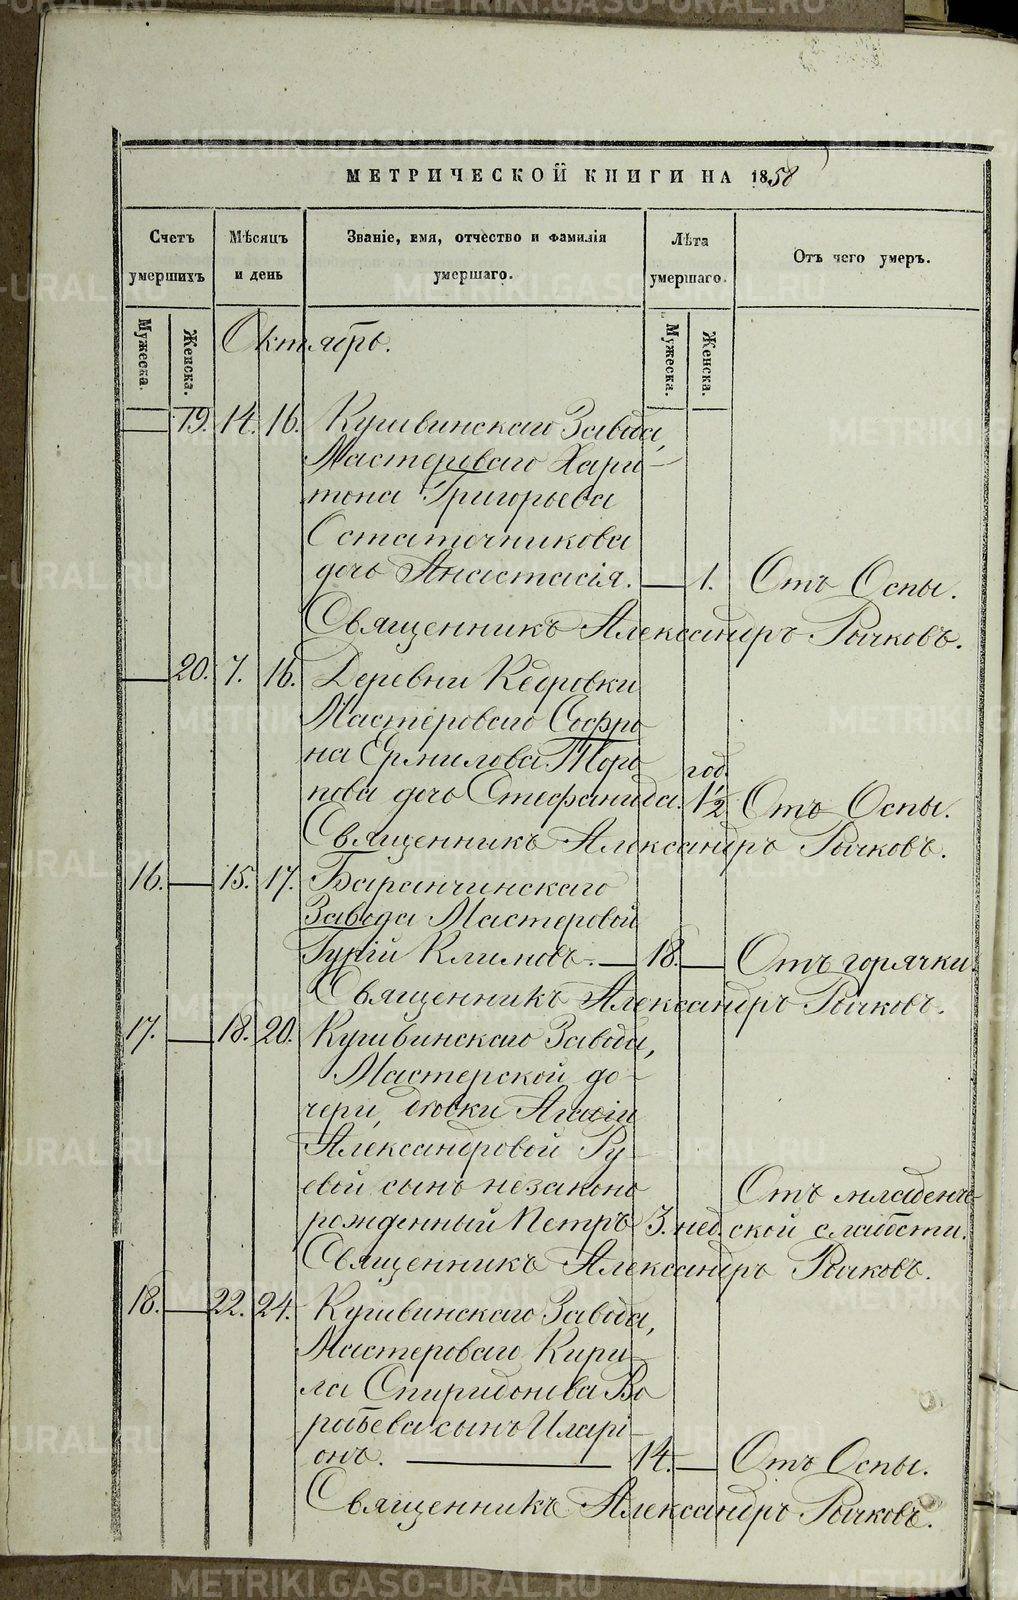 МЕТРИЧЕСКОЙ КНИГИ НА 1858
Счетъ умершихъ
Мѣсяцъ и день
Званіе, имя, отчество и фамилія умершаго.
Лѣта умершаго.
Отъ чего умеръ.
Мужеска. Женска.
Мужеска. Женска.
Октябрь.
19. 14. 16. Кушвинскаго Завода,
Мастероваго Хари-
тона Григорьева
Остаточникова
дочь Анастасія. — 1. Отъ Оспы.
Священникъ Александръ Рычковъ.
20. 7. 16. Деревни Кедровки
Мастероваго Софро
на Ермилова Торо
год.
пова дочь Стефанида. 1½ Отъ Оспы.
Священникъ Александръ Рычковъ.
16. — 15. 17. Баранчинскаго
Завода Мастеровой
Гурій Климовъ. — 18. — Отъ горячки.
Священникъ Александръ Рычковъ.
17. — 18. 20. Кушвинскаго Завода,
Мастерской до-
чери, дѣвки Агафіи
Александровой Ру-
евой сынъ незаконо
Отъ младенче-
рожденный Петръ 3. нед. ской слабости.
Священникъ Александръ Рычковъ.
18. — 22. 24. Кушвинскаго Завода,
Мастероваго Кири-
ла Спиридонова Во
робьева сынъ Иларі-
онъ. — 14. — Отъ Оспы.
Священникъ Александръ Рычковъ.
METRIKI.GASO-URAL.RU